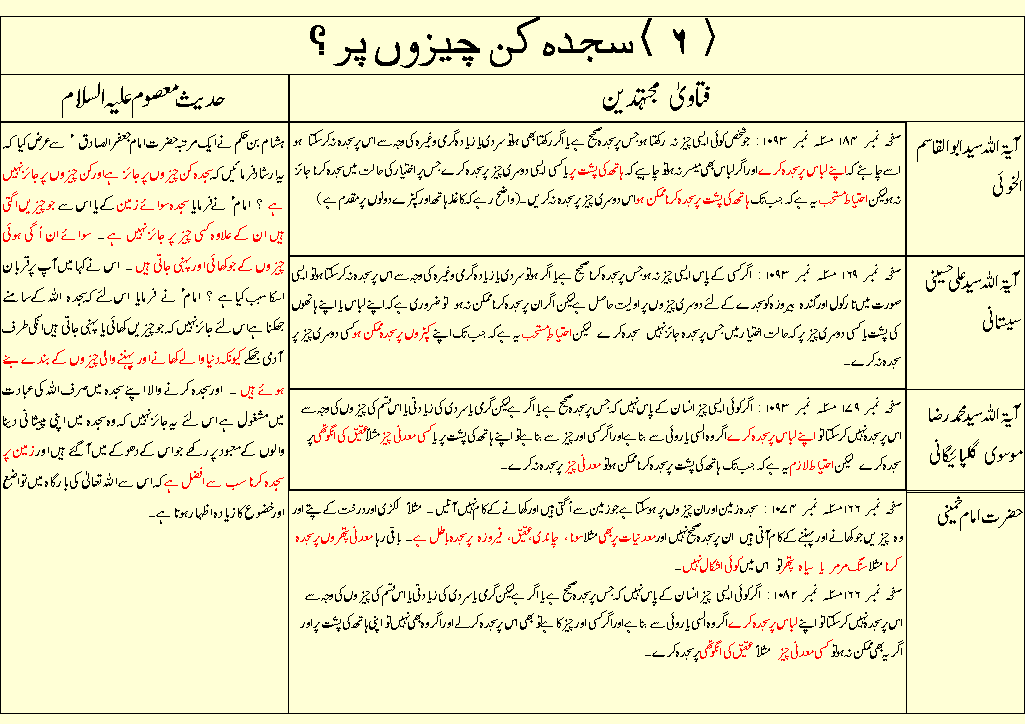 ﴿ ۶ ﴾ سجدہ کن چیزوں پر ؟
فتاویٰ مجتہدین
آیة اللہ سید ابوالقاسم
الخوئی
صفحہ نمبر ۱۸۴ مسئلہ نمبر ۱۰۹۳ : جو شخص کوئی ایسی چیز نہ رکھتا ہو جس پر سجدہ صحیح ہے یا اگر رکھتا بھی ہو تو سردی یا زیادہ گرمی وغیرہ کی وجہ سے اس پر سجدہ نہ کر سکتا ہو
اسے چاہئے کہ اپنے لباس پر سجدہ کرے اور اگر لباس بھی میسر نہ ہو تو چاہیے کہ ہاتھ کی پشت پر یا کسی ایسی دوسری چیز پر سجدہ کرے جس پر اختیار کی حالت میں سجدہ کرنا جائز
نہ ہو لیکن احتیاط مستحب یہ ہے کہ جب تک ہاتھ کی پشت پر سجدہ کرنا ممکن ہو اس دوسری چیز پر سجدہ نہ کریں ۔ ( واضح رہے کہ کاغذ ہاتھ اور کپڑے دونوں پر مقدم ہے )
آیة اللہ سید علی حسینی
سیستانی
صفحہ نمبر ۱۶۹ مسئلہ نمبر ۱۰۹۳ : اگر کسی کے پاس ایسی چیز نہ ہو جس پر سجدہ کرنا صحیح ہے یا اگر ہو تو سردی یا زیادہ گرمی وغیرہ کی وجہ سے اس پر سجدہ نہ کر سکتا ہو تو ایسی
صورت میں تارکول اور گندہ بیروزہ کو سجدے کے لئے دوسری چیزوں پر اولیت حاصل ہے لیکن اگر ان پر سجدہ کرنا ممکن نہ ہو تو ضروری ہے کہ اپنے لباس یا اپنے ہاتھوں
کی پشت یا کسی دوسری چیز پر کہ حالت اختیار میں جس پر سجدہ جائز نہیں سجدہ کرے لیکن احتیاط مستحب یہ ہے کہ جب تک اپنے کپڑوں پر سجدہ ممکن ہو کسی دوسری چیز پر
سجدہ نہ کرے ۔
آیة اللہ سید محمد رضا
موسوی گلپائیگانی
صفحہ نمبر ۱۷۹ مسئلہ نمبر ۱۰۹۳ : اگر کوئی ایسی چیز انسان کے پاس نہیں کہ جس پر سجدہ صحیح ہے یا اگر ہے لیکن گرمی یا سردی کی زیادتی یا اس قسم کی چیزوں کی وجہ سے
اس پر سجدہ نہیں کر سکتا تو اپنے لباس پر سجدہ کرے اگر وہ السی یا روئی سے بنا ہے اور اگر کسی اور چیز سے بنا ہے تو اپنے ہاتھ کی پشت پر یا کسی معدنی چیز مثلاً عقیق کی انگوٹھی پر
سجدہ کرے لیکن احتیاط لازم یہ ہے کہ جب تک ہاتھ کی پشت پر سجدہ کرنا ممکن ہو تو معدنی چیز پر سجدہ نہ کرے ۔
حضرت امام خمینی
صفحہ نمبر ۱۶۶ مسئلہ نمبر ۱۰۷۴ : سجدہ زمین اور ان چیزوں پر ہو سکتا ہے جو زمین سے اُگتی ہیں اور کھانے کے کام نہیں آتیں ۔ مثلاً لکڑی اور درخت کے پتے اور
وہ چیزیں جو کھانے اور پہننے کے کام آتی ہیں ان پر سجدہ صحیح نہیں اور معدنیات پر بھی مثلا سونا ، چاندی عقیق ، فیروزہ پر سجدہ باطل ہے ۔ باقی رہا معدنی پتھروں پر سجدہ
کرنا مثلا سنگ مرمر یا سیاہ پتھر تو اس میں کوئی اشکال نہیں ۔
صفحہ نمبر ۱۶۶ مسئلہ نمبر ۱۰۸۲ : اگر کوئی ایسی چیز انسان کے پاس نہیں کہ جس پر سجدہ صحیح ہے یا اگر ہے لیکن گرمی یا سردی کی زیادتی یا اس قسم کی چیزوں کی وجہ سے
اس پر سجدہ نہیں کر سکتا تو اپنے لباس پر سجدہ کرے اگر وہ السی یا روئی سے بنا ہے اور اگر کسی اور چیز کا ہے تو بھی اس پر سجدہ کرے اور اگر وہ بھی نہیں تو اپنی ہاتھ کی پشت پر اور
اگر یہ بھی ممکن نہ ہو تو کسی معدنی چیز مثلاً عقیق کی انگوٹھی پر سجدہ کرے ۔
حدیث معصوم علیہ السلام
ہشام بن حکم نے ایک مرتبہ حضرت امام جعفر الصادق ؑ سے عرض کیا کہ
یہ ارشاد فرمائیں کہ سجدہ کن چیزوں پر جائز ہے اور کن چیزوں پر جائز نہیں
ہے ؟ امام ؑ نے فرمایا سجدہ سوائے زمین کے یا اس سے جو چیزیں اگتی
ہیں ان کے علاوہ کسی چیز پر جائز نہیں ہے ۔ سوائے ان اُگی ہوئی
چیزوں کے جو کھائی اور پہنی جاتی ہیں ۔ اس نے کہا میں آپ پر قربان
اسکا سبب کیا ہے ؟ امام ؑ نے فرمایا اس لئے کہ سجدہ اللہ کے سامنے
جھکنا ہے اس لئے جائز نہیں کہ جو چیزیں کھائی یا پہنی جاتی ہیں انکی طرف
آدمی جھکے کیونکہ دنیا والے کھانے اور پہننے والی چیزوں کے بندے بنے
ہوئے ہیں ۔ اور سجدہ کرنے والا اپنے سجدہ میں صرف اللہ کی عبادت
میں مشغول ہے اس لئے یہ جائز نہیں کہ وہ سجدہ میں اپنی پیشانی دنیا
والوں کے معبود پر رکھے جو اس کے دھوکے میں آ گئے ہیں اور زمین پر
سجدہ کرنا سب سے افضل ہے کہ اس سے اللہ تعالیٰ کی بارگاہ میں تواضع
اور خضوع کا زیادہ اظہار ہوتا ہے ۔